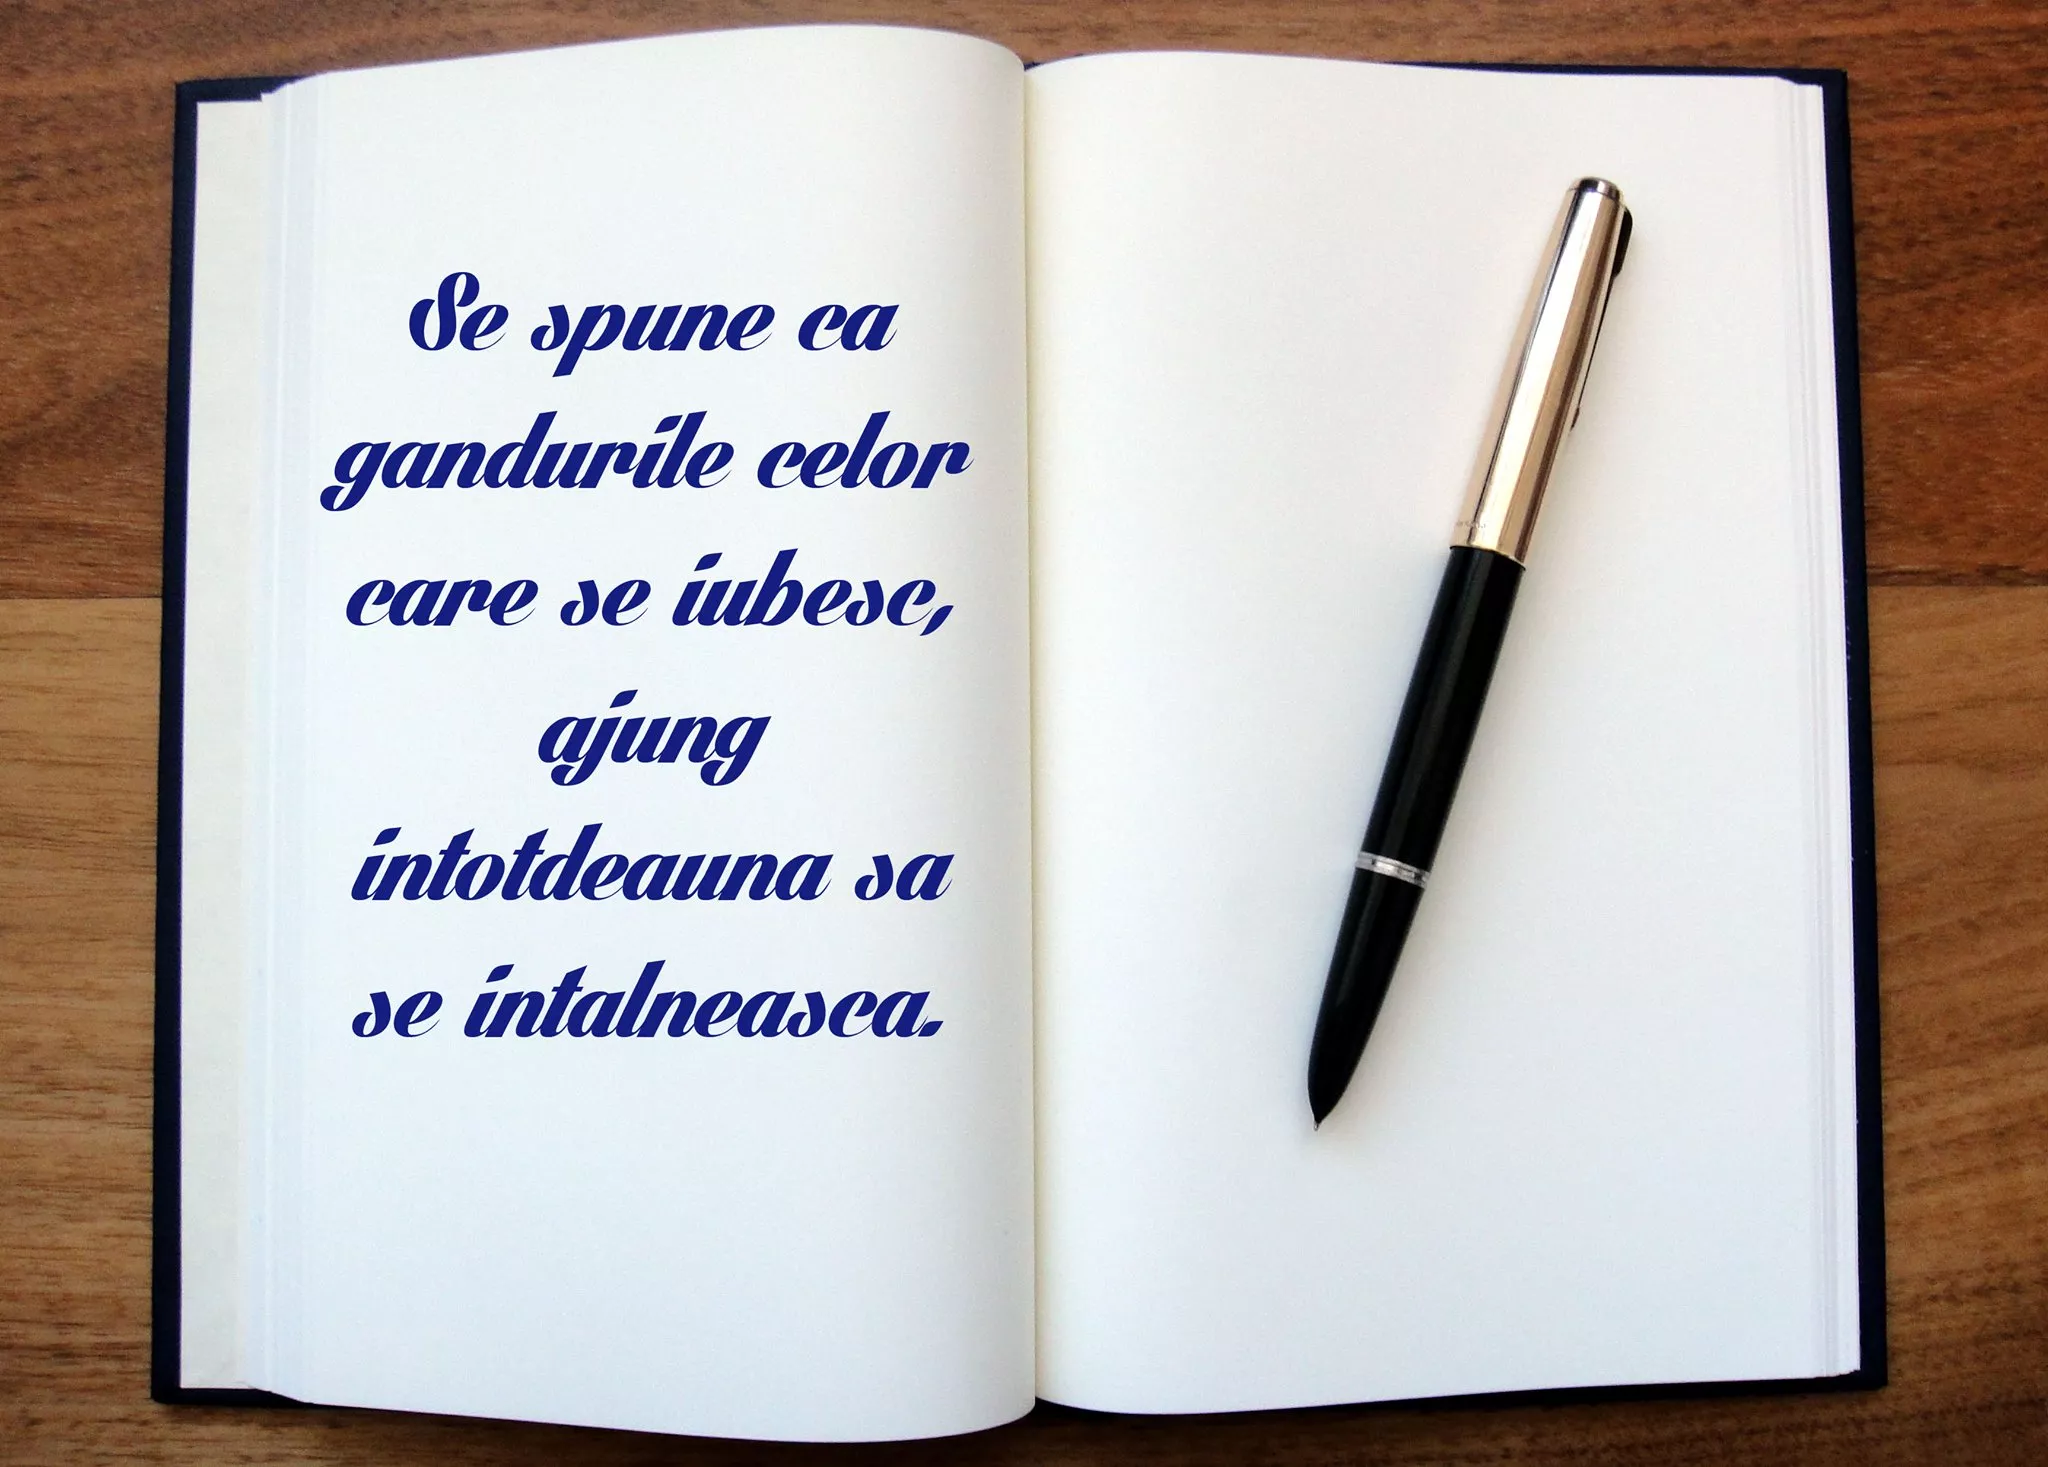 Se spune ca
gandurile celor
care se iubesc,
ajung
intotdeauna sa
se intalneasca.